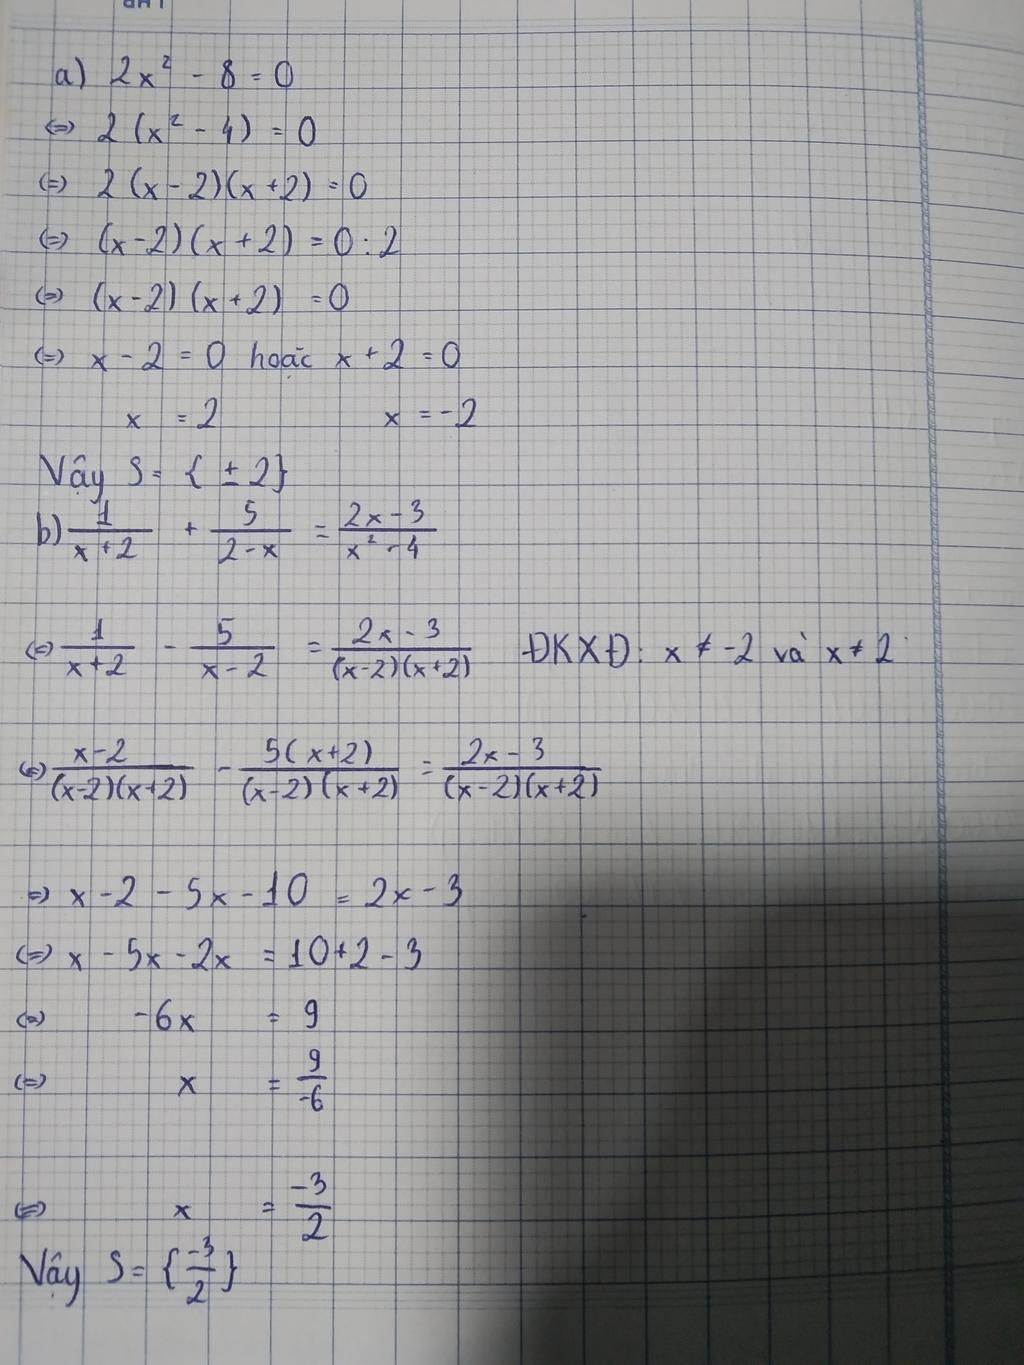 a) 2x² - 8 = 0
(=) 2(x² - 4) = 0
(=) 2(x - 2)(x + 2) = 0
(=) (x - 2)(x + 2) = 0 : 2
(=) (x - 2)(x + 2) = 0
(=) x - 2 = 0 hoặc x + 2 = 0
x = 2 x = -2
Vậy S = { ± 2}
b) 1/(x + 2) + 5/(2 - x) = (2x - 3)/(x² - 4)
(=) 1/(x + 2) - 5/(x - 2) = (2x - 3)/((x - 2)(x + 2)) ĐKXĐ: x ≠ -2 và x ≠ 2
(=) (x - 2)/((x - 2)(x + 2)) - 5(x + 2)/((x - 2)(x + 2)) = (2x - 3)/((x - 2)(x + 2))
=) x - 2 - 5x - 10 = 2x - 3
(=) x - 5x - 2x = 10 + 2 - 3
(=) -6x = 9
(=) x = 9/-6
(=) x = -3/2
Vậy S = {-3/2}